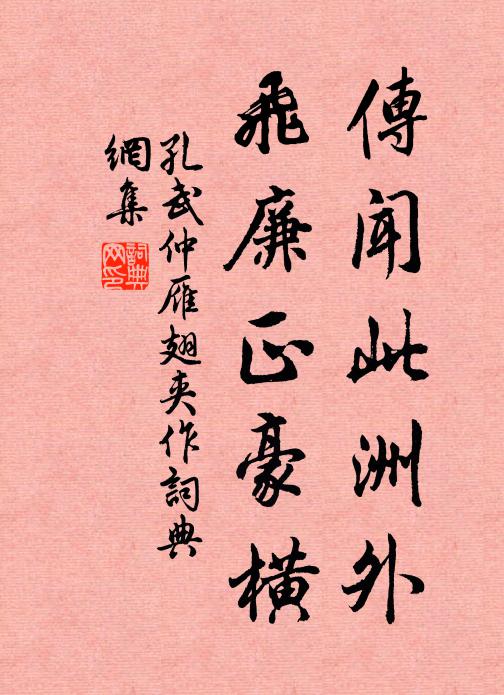 傳聞此洲外
飛廉正豪橫
孔武仲雁翅夾作詞典
網集
詞典
网印